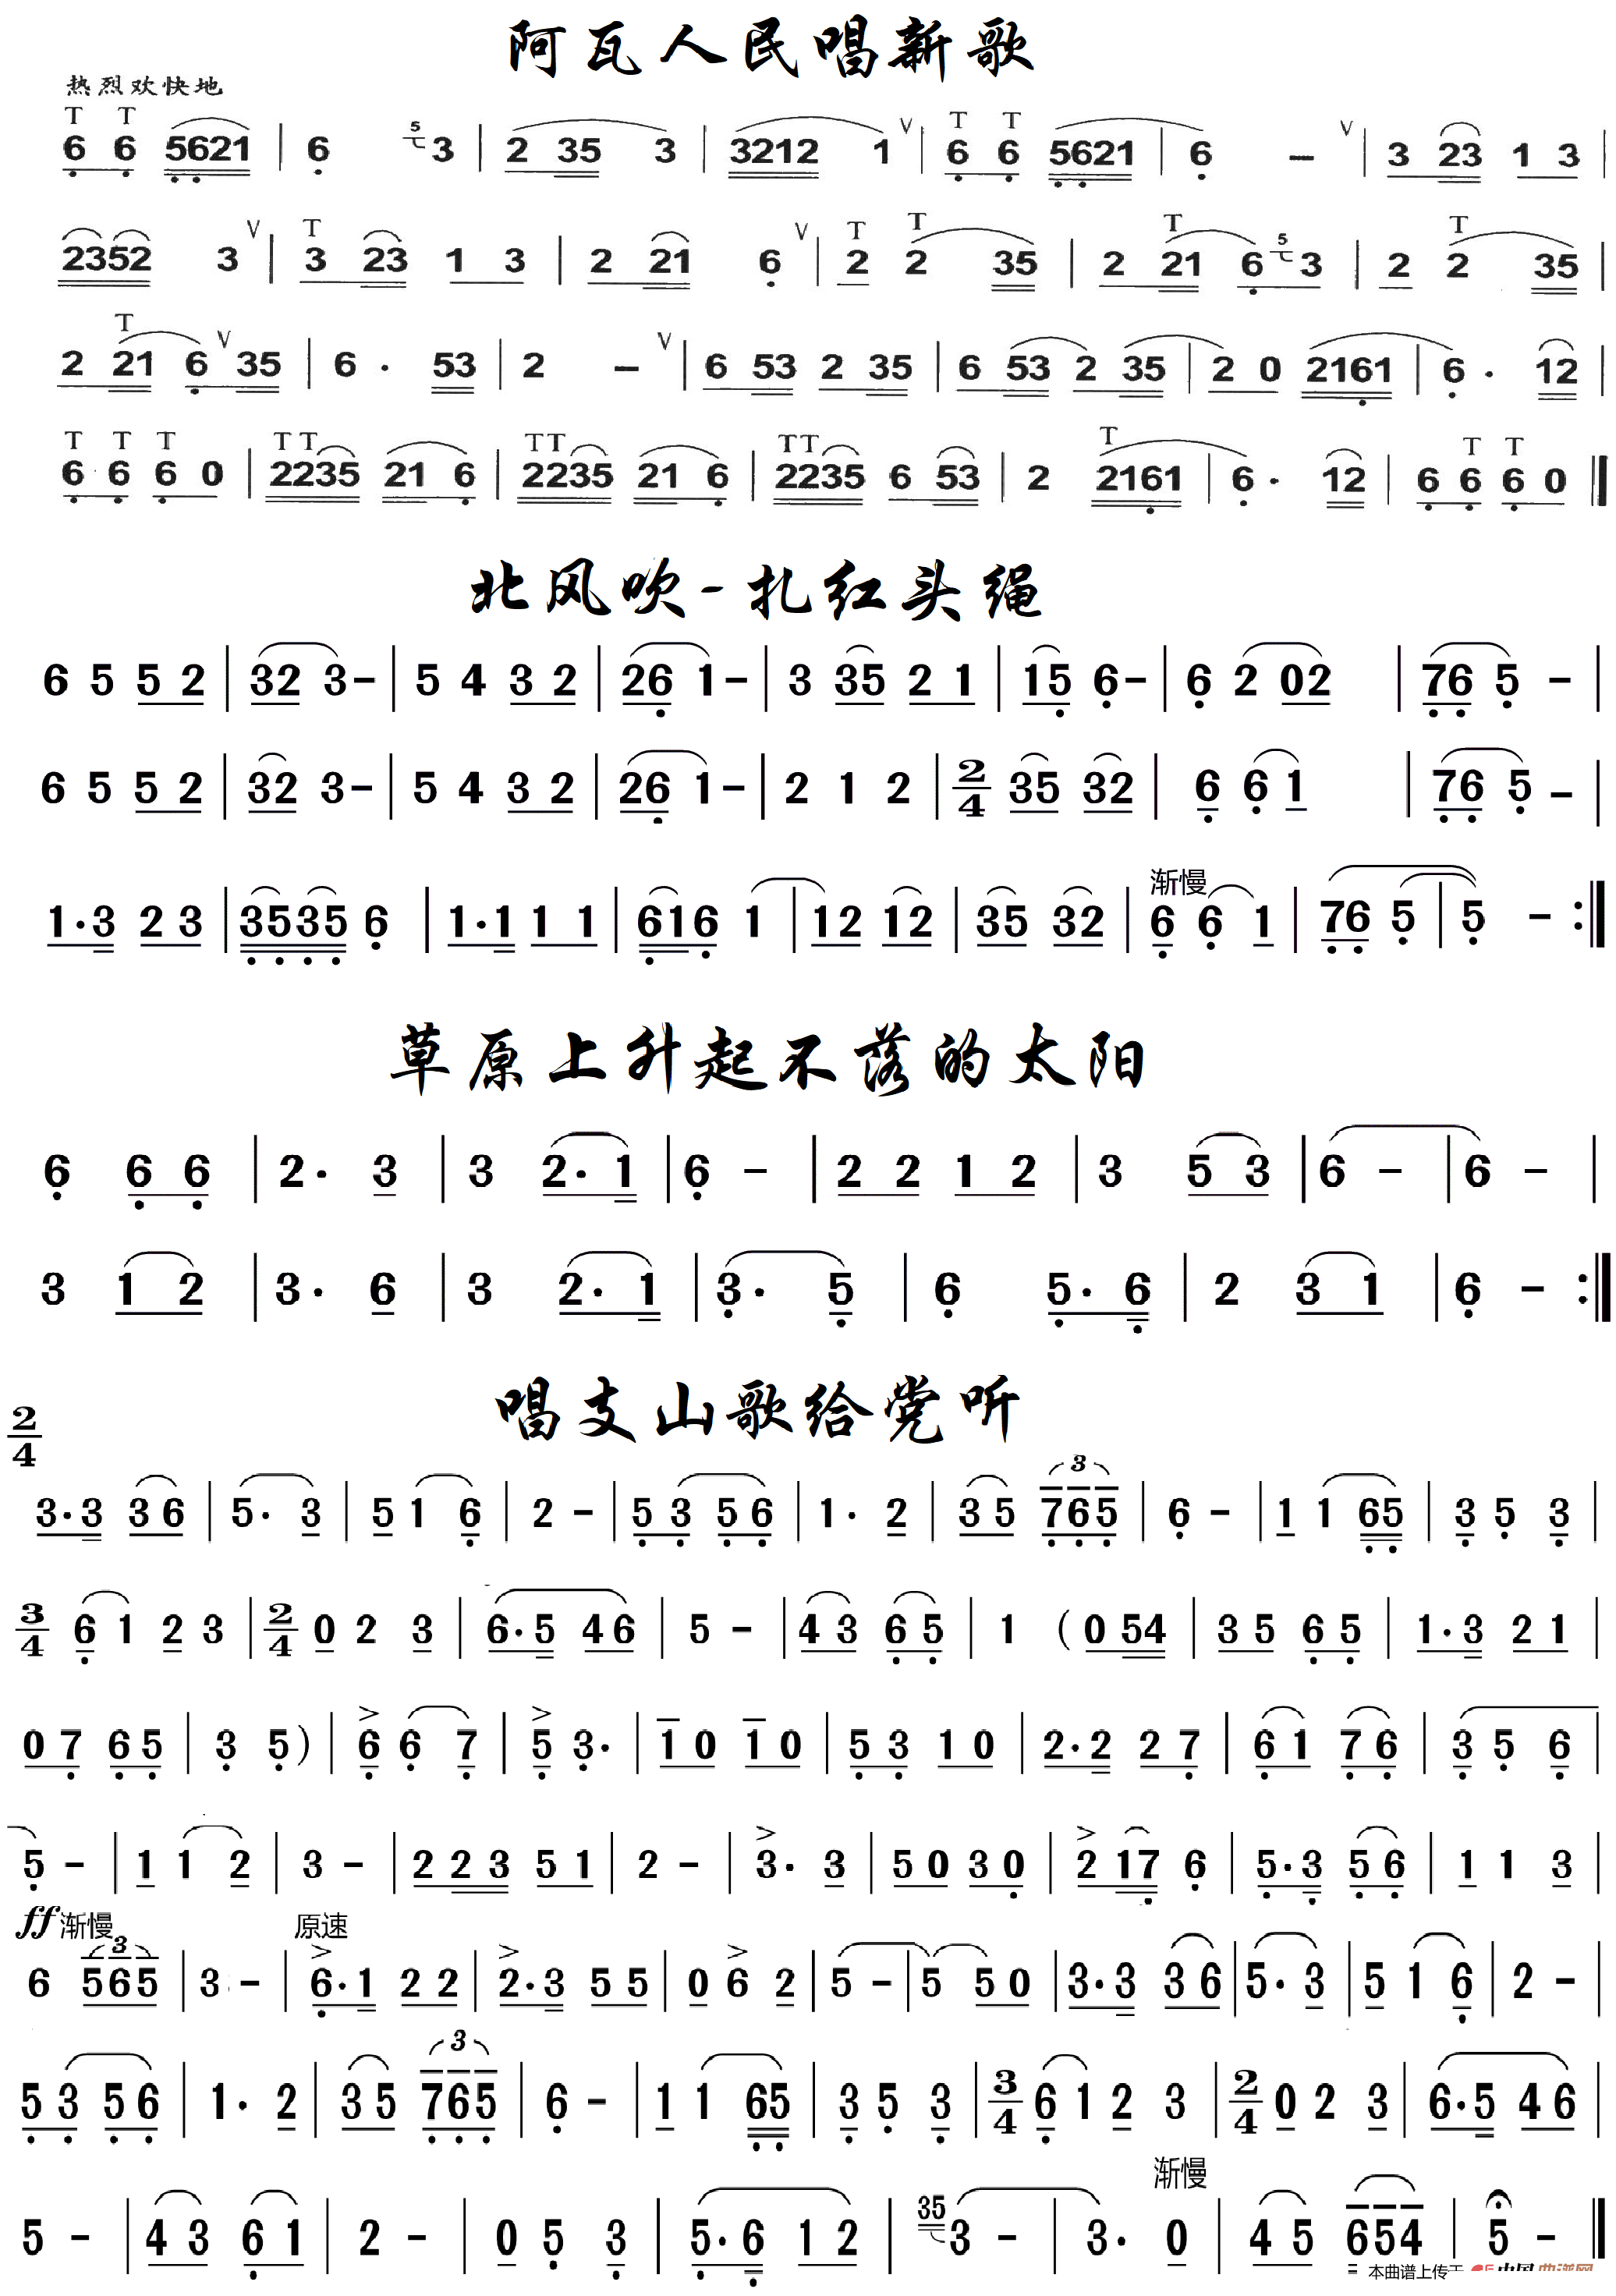 阿瓦人民唱新歌
热烈欢快地
T T T T
6 6 5621 | 6 5 3 | 2 35 3 | 3212 1 V | 6 6 5621 | 6 – V | 3 23 1 3 |
T T T T T
2352 3 V | 3 23 1 3 | 2 21 6 V | 2 2 35 | 2 21 6 5 3 | 2 2 35 |
T
2 21 6 V 35 | 6 · 53 | 2 – V | 6 53 2 35 | 6 53 2 35 | 2 0 2161 | 6 · 12 |
T T T T T T T T T T T T
6 6 6 0 | 2235 21 6 | 2235 21 6 | 2235 6 53 | 2 2161 | 6 · 12 | 6 6 6 0 ‖
北风吹-扎红头绳
6 5 5 2 | 32 3 – | 5 4 3 2 | 26 1 – | 3 35 2 1 | 15 6 – | 6 2 02 | 76 5 – |
6 5 5 2 | 32 3 – | 5 4 3 2 | 26 1 – | 2 1 2 | 2/4 35 32 | 6 6 1 | 76 5 – |
渐慢
1·3 2 3 | 3535 6 | 1·1 1 1 | 616 1 | 12 12 | 35 32 | 6 6 1 | 76 5 | 5 – :‖
草原上升起不落的太阳
6 6 6 | 2· 3 | 3 2·1 | 6 – | 2 2 1 2 | 3 5 3 | 6 – | 6 – |
3 1 2 | 3· 6 | 3 2·1 | 3· 5 | 6 5·6 | 2 3 1 | 6 – :‖
唱支山歌给党听
2/4
3
3·3 3 6 | 5· 3 | 5 1 6 | 2 – | 5 3 5 6 | 1· 2 | 3 5 765 | 6 – | 1 1 65 | 3 5 3 |
3/4 6 1 2 3 | 2/4 0 2 3 | 6·5 4 6 | 5 – | 4 3 6 5 | 1 (0 54 | 3 5 6 5 | 1·3 2 1 |
0 7 6 5 | 3 5) | > 6 6 7 | > 5 3· | 1 0 1 0 | 5 3 1 0 | 2·2 2 7 | 6 1 7 6 | 3 5 6 |
5 – | 1 1 2 | 3 – | 2 2 3 5 1 | 2 – | > 3· 3 | 5 0 3 0 | > 2 17 6 | 5·3 5 6 | 1 1 3 |
ff 渐慢 原速
3
6 565 | 3 – | > 6·1 2 2 | > 2·3 5 5 | 0 > 6 2 | 5 – | 5 5 0 | 3·3 3 6 | 5· 3 | 5 1 6 | 2 – |
3
5 3 5 6 | 1· 2 | 3 5 765 | 6 – | 1 1 65 | 3 5 3 | 3/4 6 1 2 3 | 2/4 0 2 3 | 6·5 4 6 |
渐慢
5 – | 4 3 6 1 | 2 – | 0 5 3 | 5·6 1 2 | 35 3 – | 3· 0 | 4 5 654 | 5 – ‖
本曲谱上传于 中国曲谱网